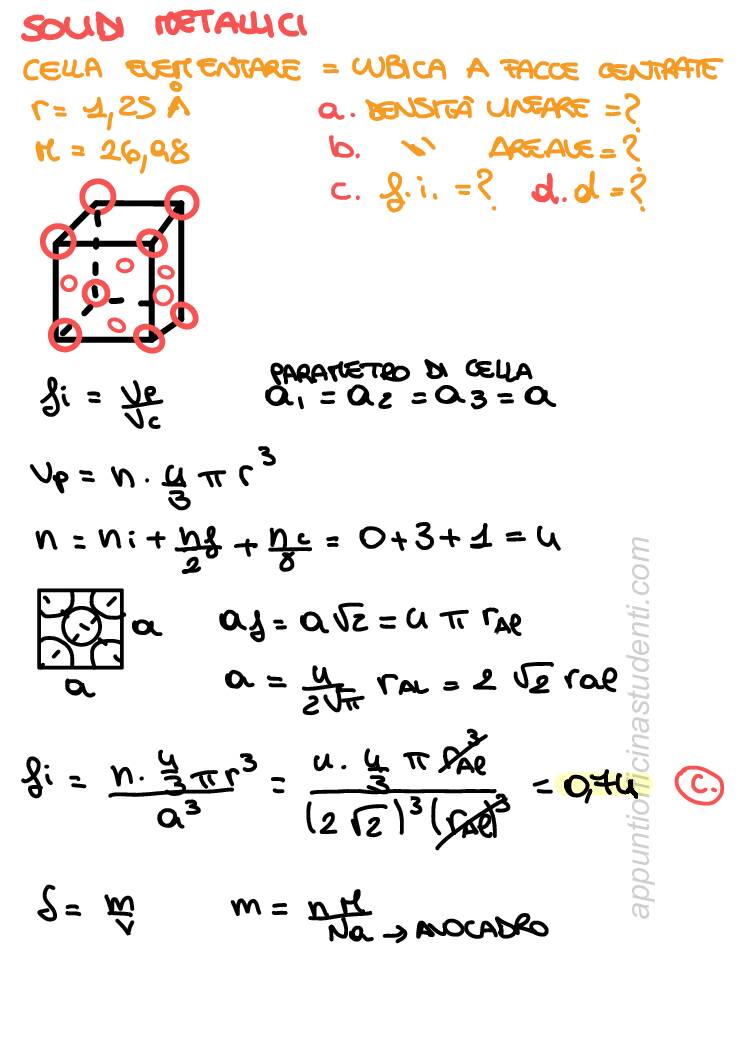 SOLIDI METALLICI
CELLA ELEMENTARE = CUBICA A FACCE CENTRATE
r = 1,25 Å a. DENSITÀ LINEARE = ?
M = 26,98 b. " AREALE = ?
c. f.i. = ? d. d = ?
PARAMETRO DI CELLA
fi = Vp/Vc a1 = a2 = a3 = a
Vp = n · 4/3 π r³
n = ni + nf/2 + nc/8 = 0 + 3 + 1 = 4
a af = a√2 = 4 π rAl
a a = 4/2√π rAL = 2 √2 ral
fi = n · 4/3 π r³ / a³ = 4 · 4/3 π rAl³ / (2 √2)³ (rAl)³ = 0,74 c.
δ = m/v m = n M/Na → AVOGADRO
appuntiofficinastudenti.com